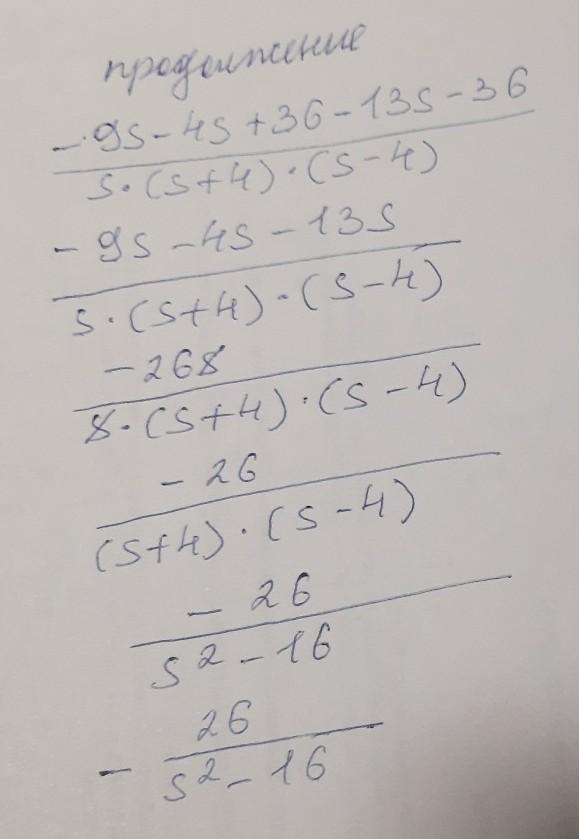 продолжение
-9s-4s+36-13s-36
s·(s+4)·(s-4)
-9s-4s-13s
s·(s+4)·(s-4)
-26s
s·(s+4)·(s-4)
-26
(s+4)·(s-4)
-26
s²-16
- 26
s²-16